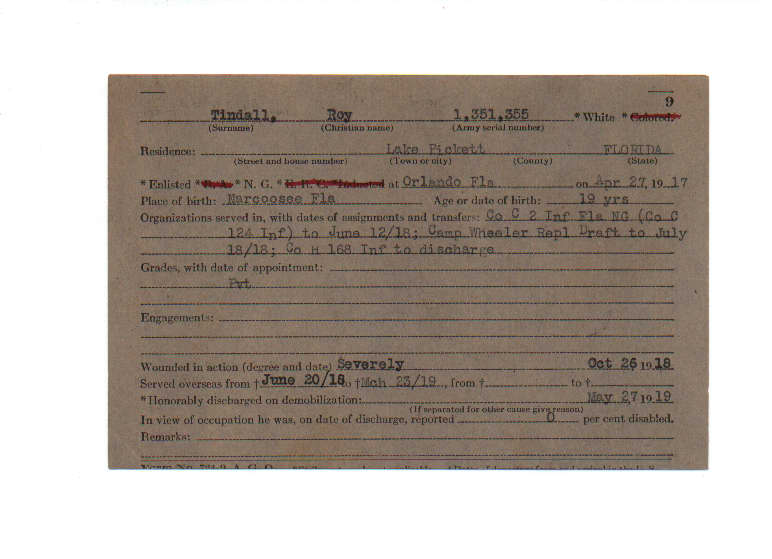 9
Tindall, Roy 1,351,355 * White * Colored.
(Surname) (Christian name) (Army serial number)
Residence: Lake Pickett FLORIDA
(Street and house number) (Town or city) (County) (State)
* Enlisted * R. A. * N. G. * E. R. C. * Inducted at Orlando Fla on Apr 27, 19 17
Place of birth: Narcoosee Fla Age or date of birth: 19 yrs
Organizations served in, with dates of assignments and transfers: Co C 2 Inf Fla NG (Co C
124 Inf) to June 12/18; Camp Wheeler Repl Draft to July
18/18; Co H 168 Inf to discharge
Grades, with date of appointment:
Pvt
Engagements:
Wounded in action (degree and date) Severely Oct 26 19 18
Served overseas from † June 20/18 to † Mch 23/19, from † to †
* Honorably discharged on demobilization: May 27, 19 19
(If separated for other cause give reason)
In view of occupation he was, on date of discharge, reported 0 per cent disabled.
Remarks: